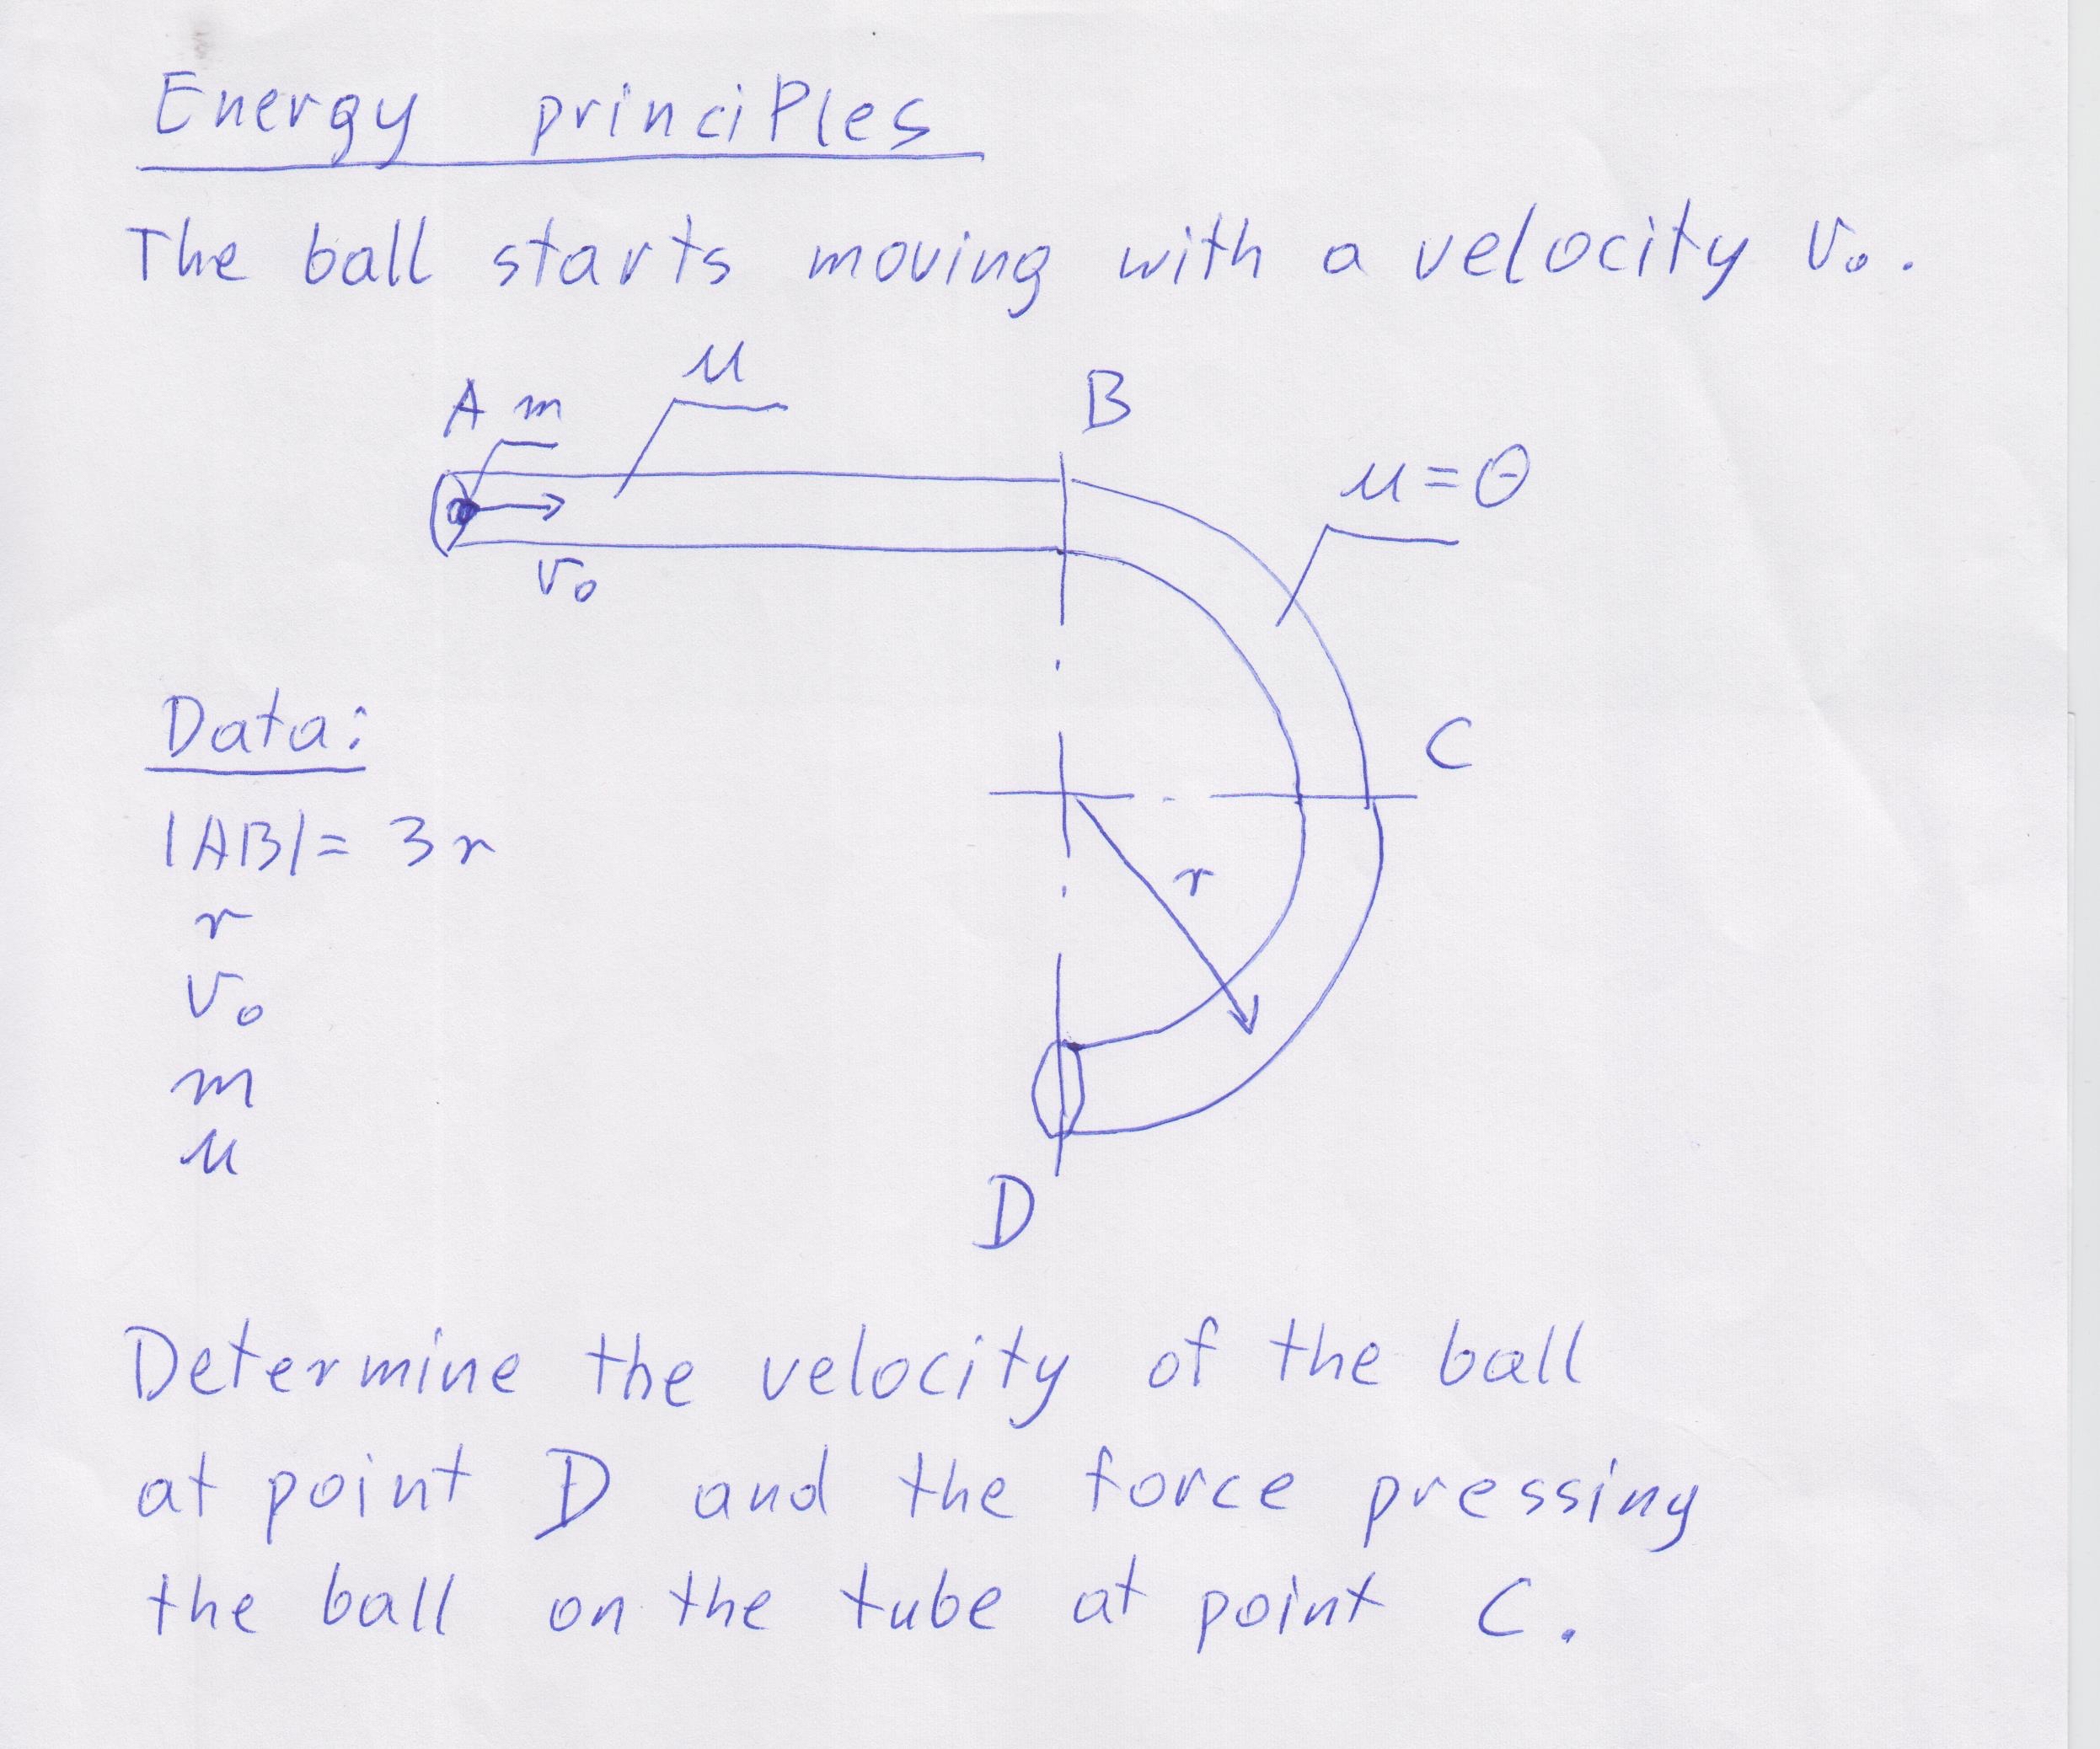 Energy principles
The ball starts moving with a velocity v₀.
A m
μ
B
μ=0
v₀
Data:
|AB|= 3r
r
v₀
m
μ
C
r
D
Determine the velocity of the ball
at point D and the force pressing
the ball on the tube at point C.